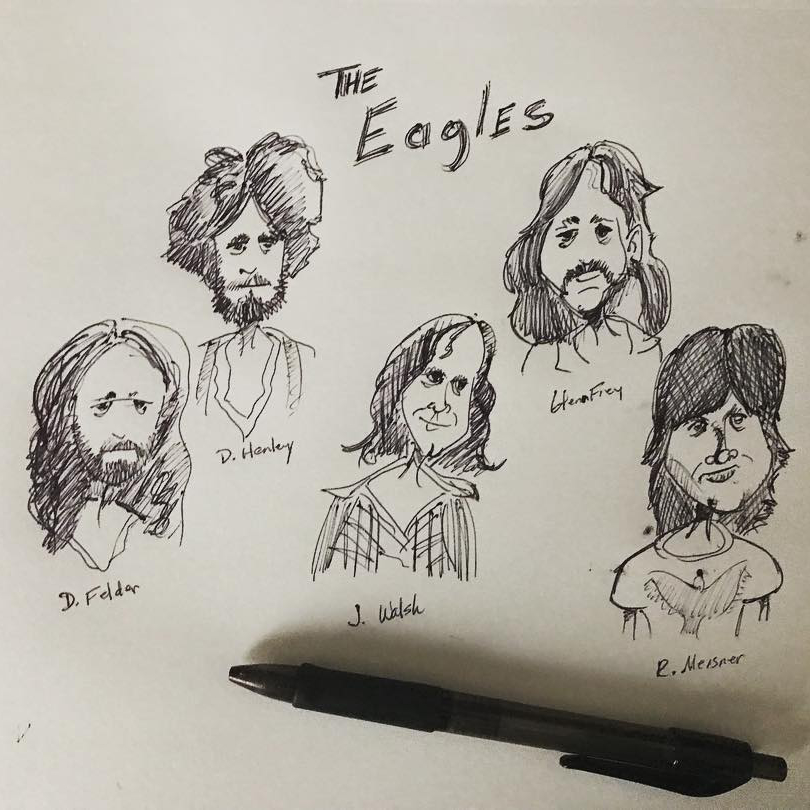 THE
EaglES
D. Henley
Glenn Frey
D. Felder
J. Walsh
R. Meisner